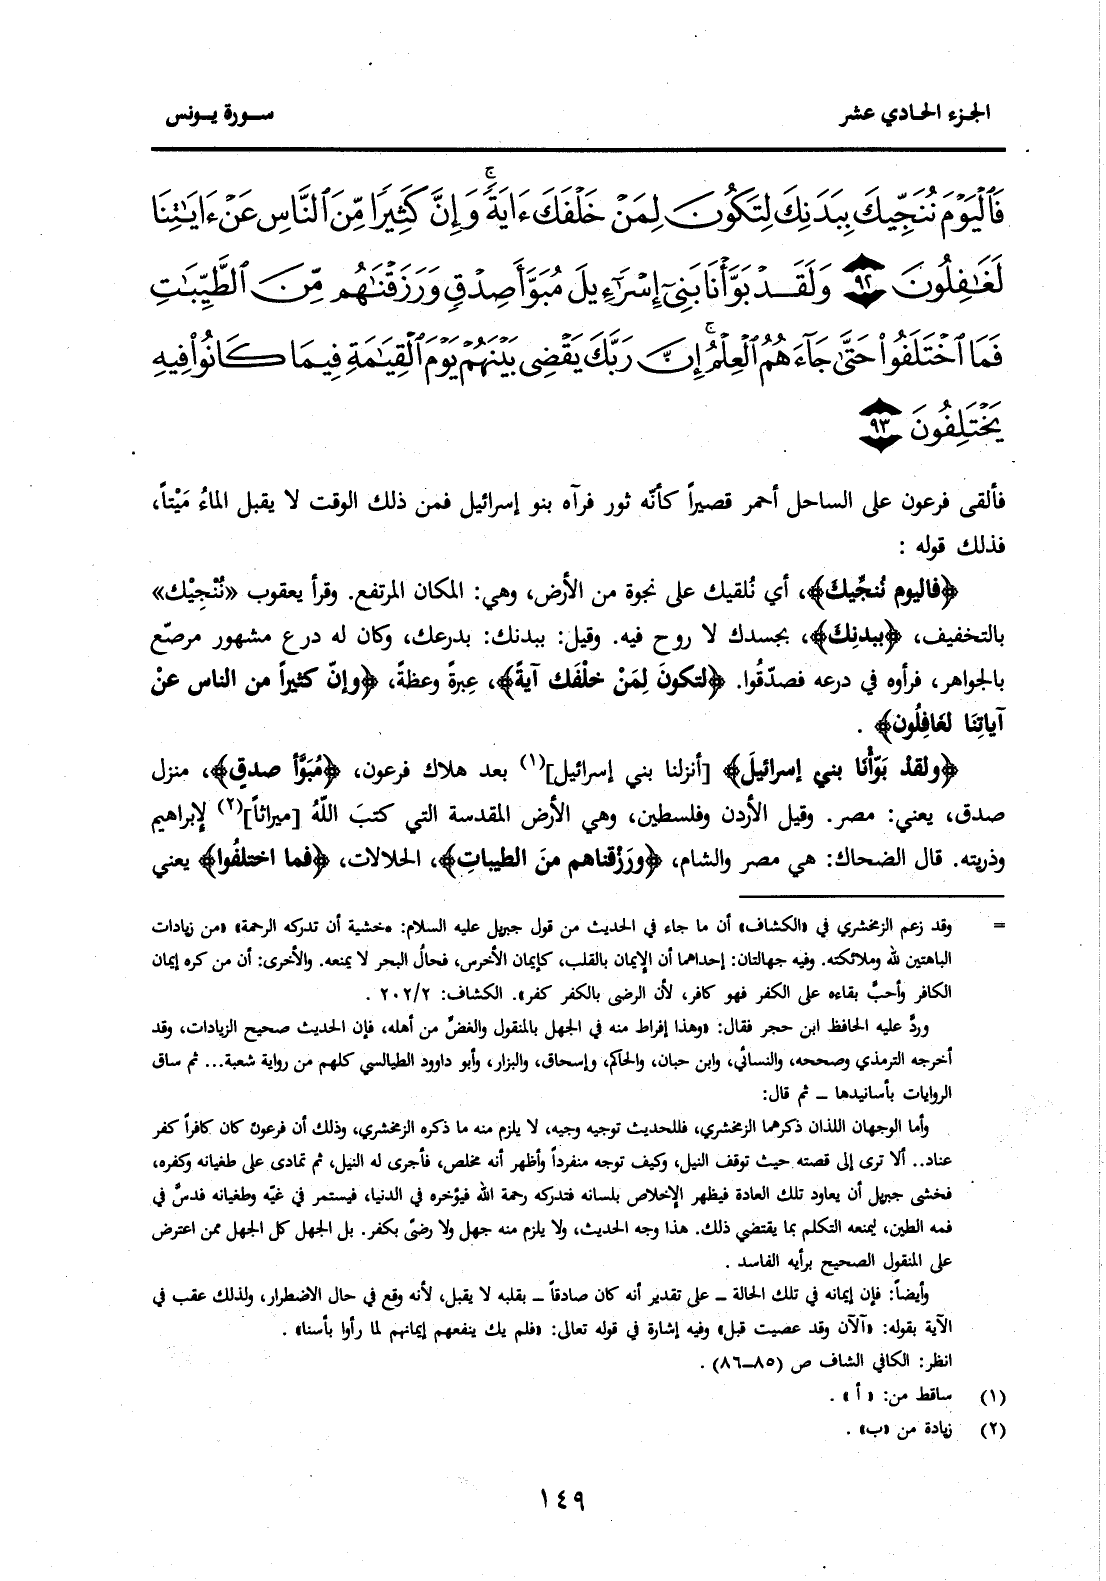 الجزء الحادي عشر
سورة يونس
فَٱلْيَوْمَ نُنَجِّيكَ بِبَدَنِكَ لِتَكُونَ لِمَنْ خَلْفَكَ ءَايَةًۚ وَإِنَّ كَثِيرًا مِّنَ ٱلنَّاسِ عَنْ ءَايَٰتِنَا
لَغَٰفِلُونَ ٩٢ وَلَقَدْ بَوَّأْنَا بَنِىٓ إِسْرَٰٓءِيلَ مُبَوَّأَ صِدْقٍ وَرَزَقْنَٰهُم مِّنَ ٱلطَّيِّبَٰتِ
فَمَا ٱخْتَلَفُوا۟ حَتَّىٰ جَآءَهُمُ ٱلْعِلْمُۚ إِنَّ رَبَّكَ يَقْضِى بَيْنَهُمْ يَوْمَ ٱلْقِيَٰمَةِ فِيمَا كَانُوا۟ فِيهِ
يَخْتَلِفُونَ ٩٣
فألقى فرعون على الساحل أحمر قصيراً كأنّه ثور فرآه بنو إسرائيل فمن ذلك الوقت لا يقبل الماءُ مَيْتاً،
فذلك قوله :
﴿فاليوم نُنجِّيكَ﴾، أي نُلقيك على نجوة من الأرض، وهي: المكان المرتفع. وقرأ يعقوب «نُنْجِيْك»
بالتخفيف، ﴿ببدنِكَ﴾، بجسدك لا روح فيه. وقيل: ببدنك: بدرعك، وكان له درع مشهور مرصّع
بالجواهر، فرأوه في درعه فصدّقُوا. ﴿لتكونَ لِمَنْ خلْفَك آيةً﴾، عِبرةً وعظةً، ﴿وإنّ كثيراً من الناس عنْ
آياتِنَا لغَافِلُون﴾ .
﴿ولقدْ بَوّأْنَا بني إسرائيلَ﴾ [أنزلنا بني إسرائيل](١) بعد هلاك فرعون، ﴿مُبَوَّأ صدقٍ﴾، منزل
صدق، يعني: مصر. وقيل الأردن وفلسطين، وهي الأرض المقدسة التي كتبَ اللّهُ [ميراثاً](٢) لإبراهيم
وذريته. قال الضحاك: هي مصر والشام، ﴿ورَزقْناهم منَ الطيباتِ﴾، الحلالات، ﴿فما اختلفُوا﴾ يعني
= وقد زعم الزمخشري في «الكشاف» أن ما جاء في الحديث من قول جبريل عليه السلام: «خشية أن تدركه الرحمة» «من زيادات
الباهتين لله وملائكته. وفيه جهالتان: إحداهما أن الإيمان بالقلب، كإيمان الأخرس، فحالُ البحر لا يمنعه. والأخرى: أن من كره إيمان
الكافر وأحبَّ بقاءه على الكفر فهو كافر، لأن الرضى بالكفر كفر». الكشاف: ٢٠٢/٢ .
وردَّ عليه الحافظ ابن حجر فقال: «وهذا إفراط منه في الجهل بالمنقول والغضِّ من أهله، فإن الحديث صحيح الزيادات، وقد
أخرجه الترمذي وصححه، والنسائي، وابن حبان، والحاكم، وإسحاق، والبزار، وأبو داوود الطيالسي كلهم من رواية شعبة... ثم ساق
الروايات بأسانيدها ــ ثم قال:
وأما الوجهان اللذان ذكرهما الزمخشري، فللحديث توجيه وجيه، لا يلزم منه ما ذكره الزمخشري، وذلك أن فرعون كان كافراً كفر
عناد.. ألا ترى إلى قصته حيث توقف النيل، وكيف توجه منفرداً وأظهر أنه مخلص، فأجرى له النيل، ثم تمادى على طغيانه وكفره،
فخشى جبريل أن يعاود تلك العادة فيظهر الإخلاص بلسانه فتدركه رحمة الله فيؤخره في الدنيا، فيستمر في غيّه وطغيانه فدسَّ في
فمه الطين، ليمنعه التكلم بما يقتضي ذلك. هذا وجه الحديث، ولا يلزم منه جهل ولا رضىً بكفر. بل الجهل كل الجهل ممن اعترض
على المنقول الصحيح برأيه الفاسد .
وأيضاً: فإن إيمانه في تلك الحالة ــ على تقدير أنه كان صادقاً ــ بقلبه لا يقبل، لأنه وقع في حال الاضطرار، ولذلك عقب في
الآية بقوله: «آلآن وقد عصيت قبل» وفيه إشارة في قوله تعالى: «فلم يك ينفعهم إيمانهم لما رأوا بأسنا» .
انظر: الكافي الشاف ص (٨٥ــ٨٦) .
(١) ساقط من: «أ» .
(٢) زيادة من «ب» .
١٤٩